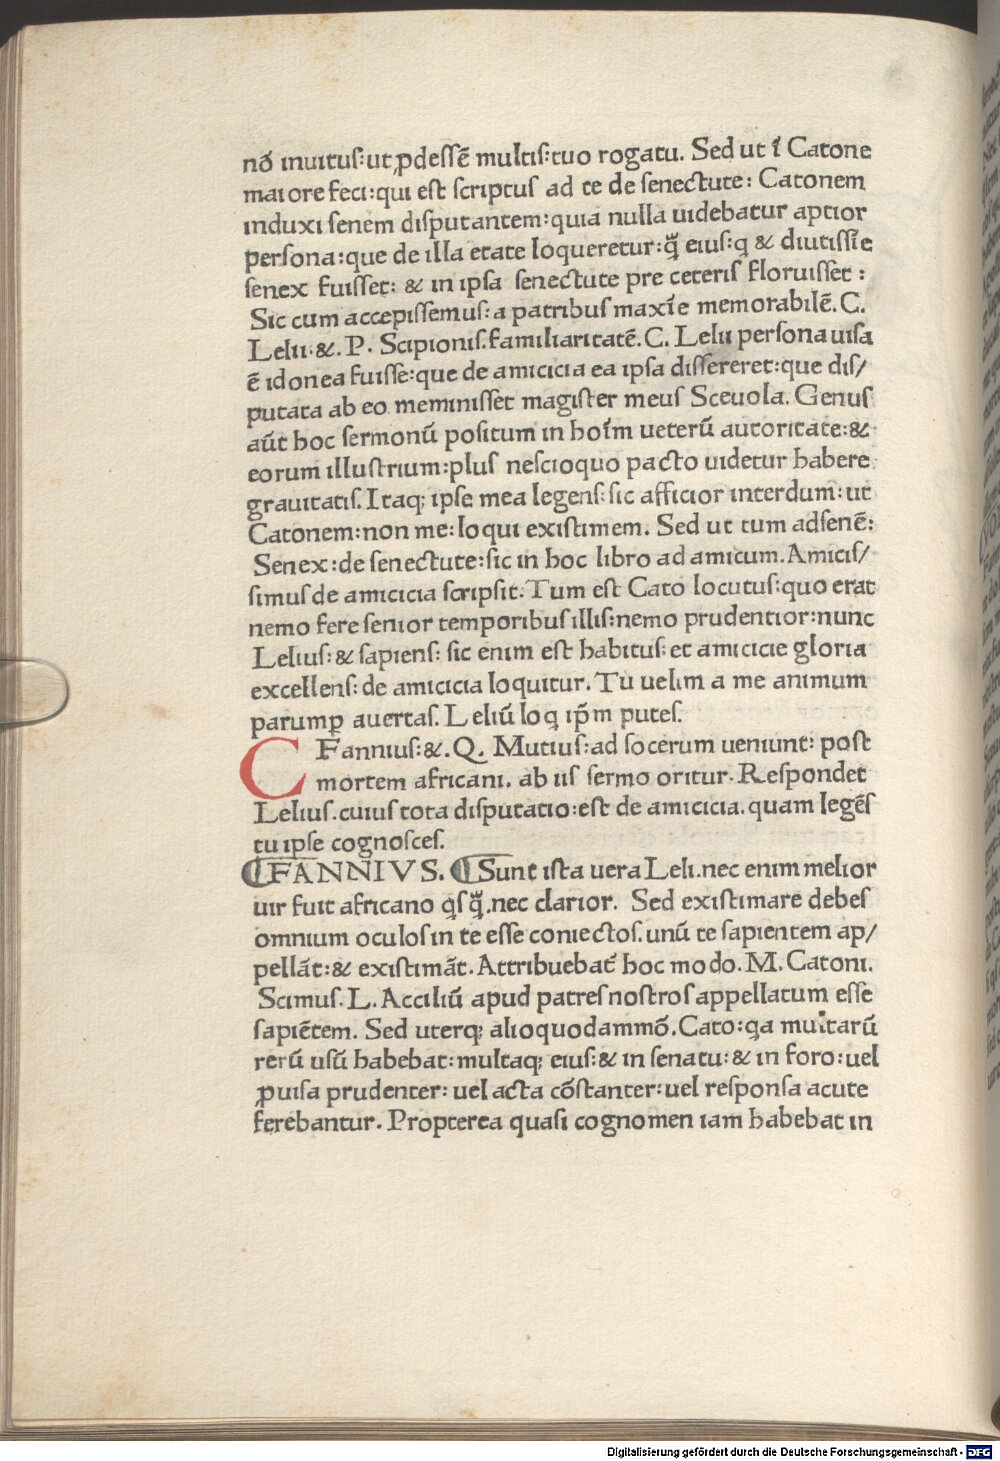 nō inuitus: ut ꝓdessē multis: tuo rogatu. Sed ut ī Catone
maiore feci: qui est scriptus ad te de senectute: Catonem
induxi senem disputantem: quia nulla uidebatur aptior
persona: que de illa etate loqueretur: q̄̈ eius: q & diutissīe
senex fuisset: & in ipsa senectute pre ceteris floruisset:
Sic cum accepissemus: a patribus maxīe memorabilē. C.
Lelii. &. P. Scipionis. familiaritatē. C. Lelii persona uisa
ē idonea fuisse: que de amicicia ea ipsa dissereret: que dis/
putata ab eo meminisset magister meus Sceuola. Genus
aūt hoc sermonū positum in hoīm ueterū autoritate: &
eorum illustrium: plus nescioquo pacto uidetur habere
grauitatis. Itaq; ipse mea legens: sic afficior interdum: ut
Catonem: non me: loqui existimem. Sed ut tum ad senē:
Senex: de senectute: sic in hoc libro ad amicum. Amicis/
simus de amicicia scripsit. Tum est Cato locutus: quo erat
nemo fere senior temporibus illis: nemo prudentior: nunc
Lelius: & sapiens: sic enim est habitus: et amicicie gloria
excellens: de amicicia loquitur. Tu uelim a me animum
parumꝑ auertas. Leliū loq ip̄m putes.
C Fannius: &. Q. Mutius: ad socerum ueniunt: post
mortem africani. ab iis sermo oritur. Respondet
Lelius. cuius tota disputatio: est de amicicia. quam legēs
tu ipse cognosces.
¶FANNIVS. ¶Sunt ista uera Leli. nec enim melior
uir fuit africano q̇sq̄̈. nec clarior. Sed existimare debes
omnium oculos in te esse coniectos. unū te sapientem ap/
pellāt: & existimāt. Attribuebat̄ hoc modo. M. Catoni.
Scimus. L. Acciliū apud patres nostros appellatum esse
sapiētem. Sed uterq; alio quodammō. Cato: qa multarū
rerū usū habebat: multaq; eius: & in senatu: & in foro: uel
ꝓuisa prudenter: uel acta cōstanter: uel responsa acute
ferebantur. Propterea quasi cognomen iam habebat in
Digitalisierung gefördert durch die Deutsche Forschungsgemeinschaft - DFG